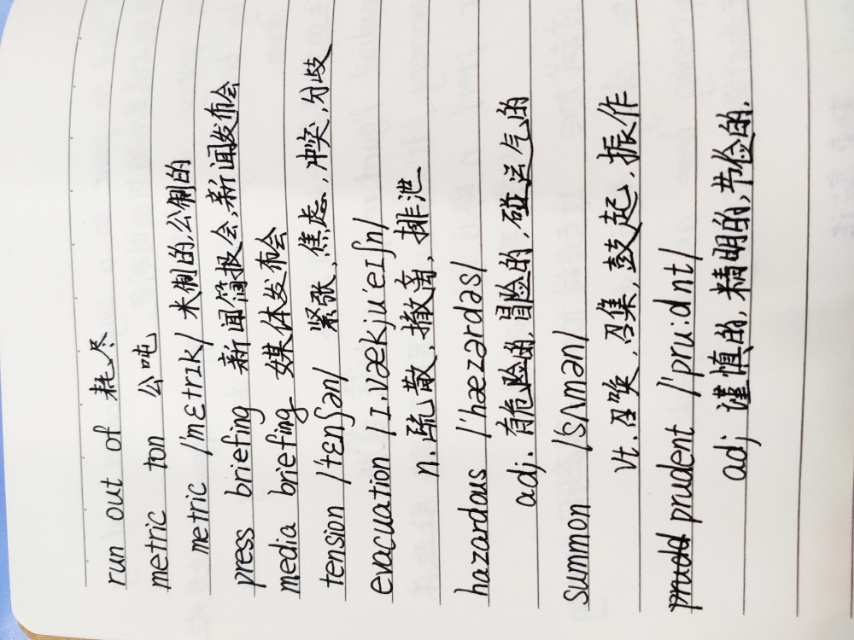 run out of 耗尽
metric ton 公吨
metric /'mɛtrɪk/ 米制的,公制的
press briefing 新闻简报会,新闻发布会
media briefing 媒体发布会
tension /'tɛnʃən/ 紧张,焦虑,冲突,分歧
evacuation /ɪ.vækju'eɪʃn/
n.疏散,撤离,排泄
hazardous /'hæzərdəs/
adj.有危险的,冒险的,碰运气的
summon /sʌmən/
vt.召唤,召集,鼓起,振作
prudent /'pru:dnt/
adj 谨慎的,精明的,节俭的.